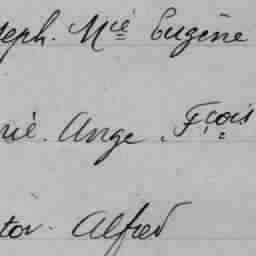 seph. Mie Eugène
rie. Ange. Fçois
tor. Alfred